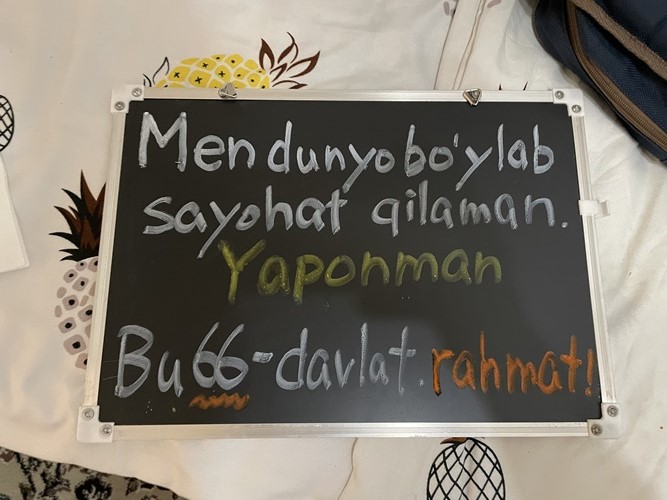 Men dunyo bo'ylab
sayohat qilaman.
Yaponman
Bu 66-davlat. rahmat!